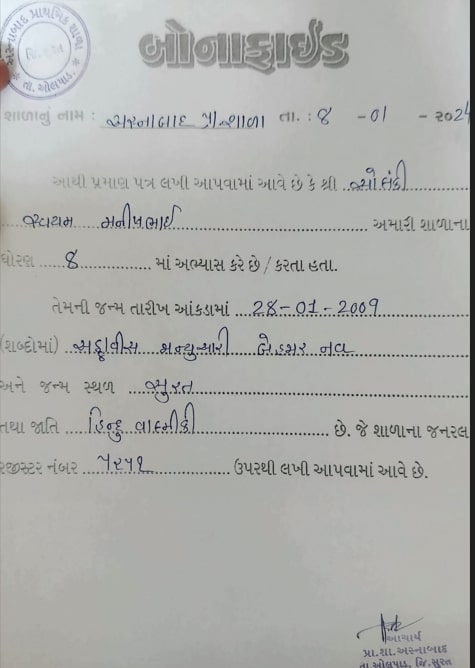 અસ્નાબાદ પ્રાથમિક શાળા
તા. ઓલપાડ.
બોનાફાઈડ
શાળાનું નામ : અસ્નાબાદ પ્રા.શાળા તા. : ૪ -01 - ૨૦૨4
આથી પ્રમાણ પત્ર લખી આપવામાં આવે છે કે શ્રી સોલંકી
સ્વયમ મનીષભાઈ અમારી શાળાના
ધોરણ ૪ માં અભ્યાસ કરે છે / કરતા હતા.
તેમની જન્મ તારીખ આંકડામાં 28-01-2009
(શબ્દોમાં) અઠ્ઠાવીસ જાન્યુઆરી બેહજાર નવ
અને જન્મ સ્થળ સુરત
તથા જાતિ હિન્દુ વાલ્મીકી છે. જે શાળાના જનરલ
રજીસ્ટર નંબર ૧૨૫૧ ઉપરથી લખી આપવામાં આવે છે.
આચાર્ય
પ્રા.શા.અસ્નાબાદ
તા.ઓલપાડ, જિ.સુરત